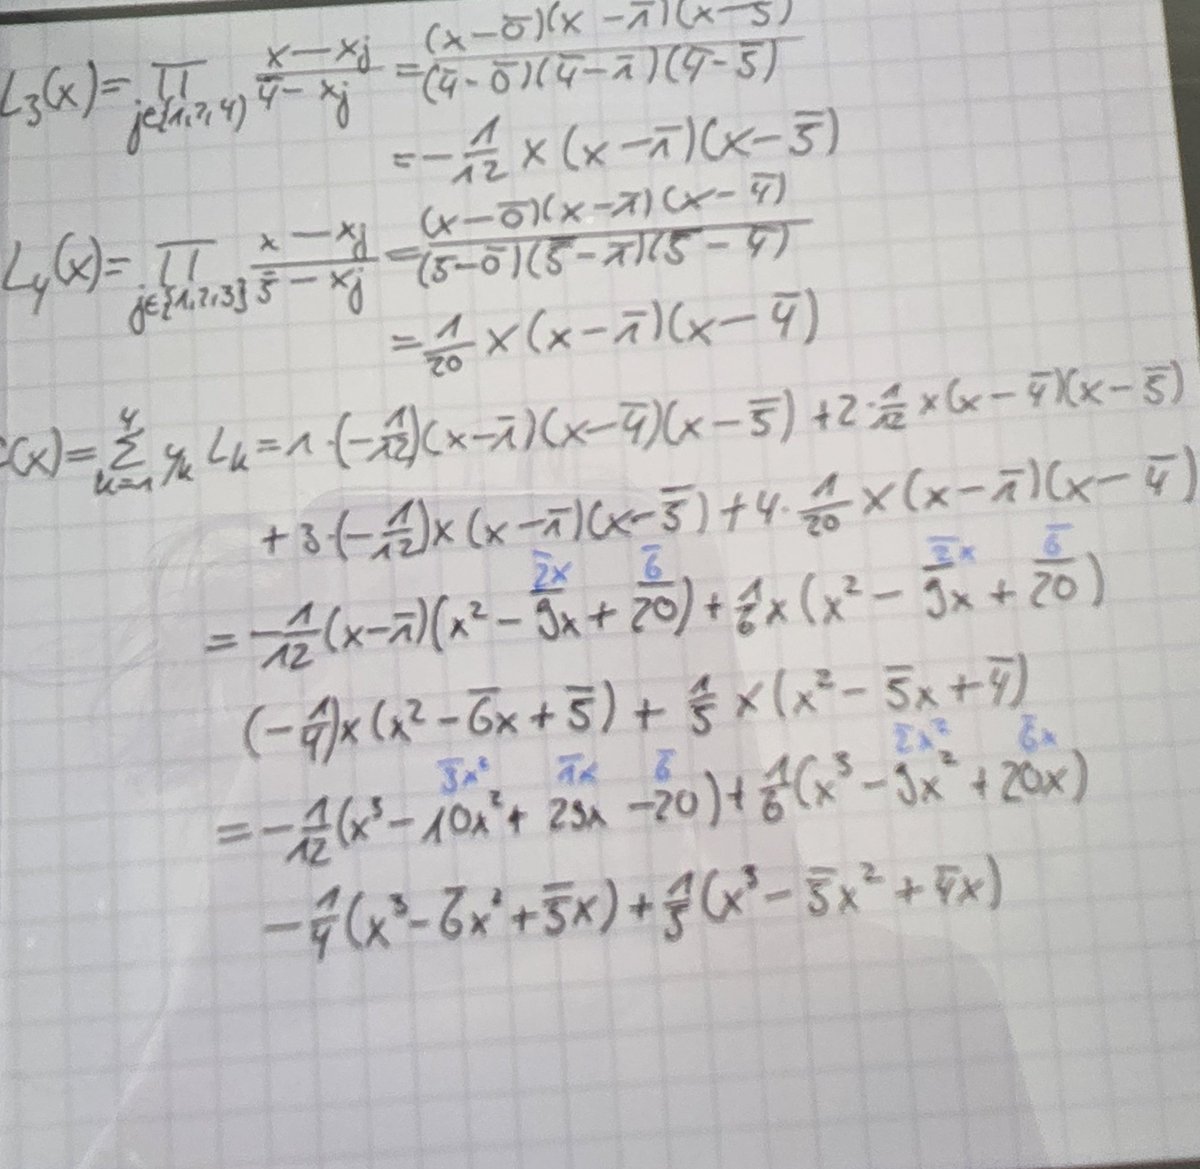 L₃(x) = ∏ j∈{1,2,4} (x − xⱼ)/(4̄ − xⱼ) = (x−0̄)(x−1̄)(x−5̄) / (4̄−0̄)(4̄−1̄)(4̄−5̄)
= − 1/12 x (x − 1̄)(x − 5̄)
L₄(x) = ∏ j∈{1,2,3} (x − xⱼ)/(5̄ − xⱼ) = (x−0̄)(x−1̄)(x−4̄) / (5̄−0̄)(5̄−1̄)(5̄−4̄)
= 1/20 x (x − 1̄)(x − 4̄)
(x) = ∑ k=1 4 yₖ Lₖ = 1·(−1/12)(x−1̄)(x−4̄)(x−5̄) + 2·1/12 x(x−4̄)(x−5̄)
+ 3·(−1/12)x(x−1̄)(x−5̄) + 4·1/20 x(x−1̄)(x−4̄)
2̄x 6̄ 2̄x 6̄
= −1/12(x−1̄)(x² − 9̅x + 2̅0̅) + 1/6 x(x² − 9̅x + 2̅0̅)
(−1/4)x(x² − 6̄x + 5̄) + 1/5 x(x² − 5̄x + 4̄)
3̄x² 1̄x 6̄ 2̄x² 6̄x
= −1/12(x³ − 10x² + 29x − 20) + 1/6(x³ − 9x² + 20x)
− 1/4(x³ − 6̄x² + 5̄x) + 1/5(x³ − 5̄x² + 4̄x)